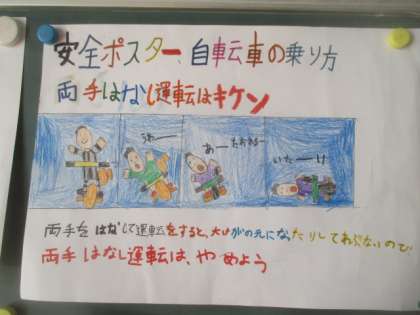 安全ポスター、自転車の乗り方
両手はなし運転はキケン
うわー
あーたおれるー
いたーい
両手をはなして運転をすると、大けがの元になったりしてあぶないので
両手はなし運転は、やめよう